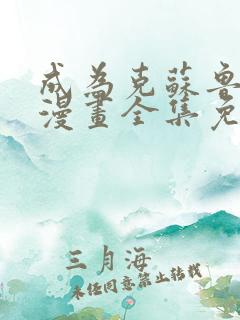 成為克蘇魯
漫畫全集免
三月海
未经同意禁止转载